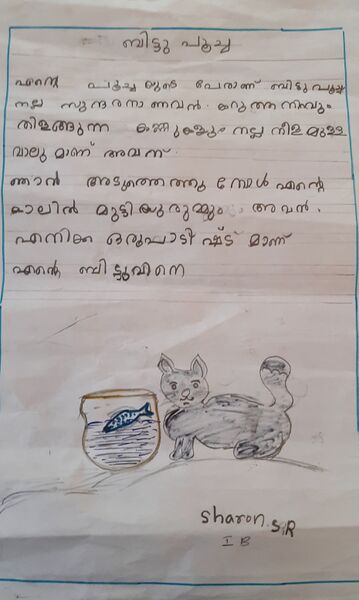 ബിട്ടു പൂച്ച
എന്റെ പൂച്ചയുടെ പേരാണ് ബിട്ടുപൂച്ച
നല്ല സുന്ദരനാണവൻ. കറുത്ത നിറവും
തിളങ്ങുന്ന കണ്ണുകളും നല്ല നീളമുള്ള
വാലുമാണ് അവന്.
ഞാൻ അടുത്തെത്തുമ്പോൾ എന്റെ
കാലിൻ മുട്ടിയുരുമ്മും അവൻ.
എനിക്ക് ഒരുപാടിഷ്ട്ടമാണ്
എന്റെ ബിട്ടുവിനെ
Sharon.S.R
I B